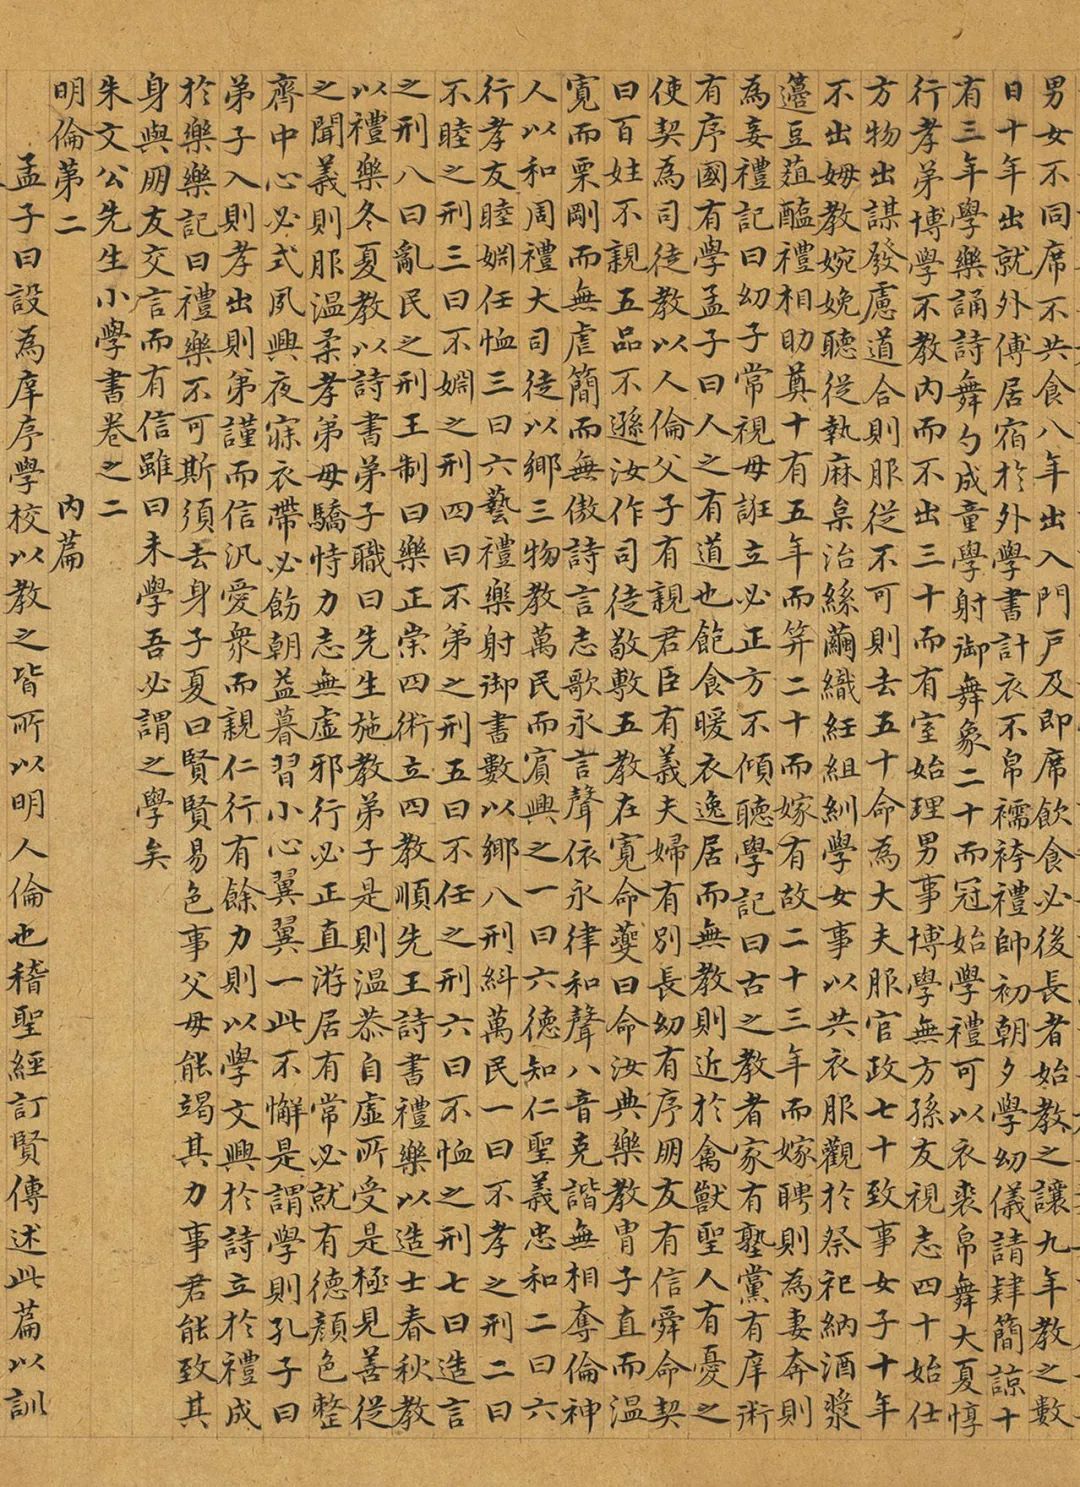 男女不同席不共食八年出入門戸及即席飲食必後長者始教之讓九年教之數
日十年出就外傅居宿於外學書計衣不帛襦袴禮帥初朝夕學幼儀請肄簡諒十
有三年學樂誦詩舞勺成童學射御舞象二十而冠始學禮可以衣裘帛舞大夏惇
行孝弟博學不教内而不出三十而有室始理男事博學無方孫友視志四十始仕
方物出謀發慮道合則服從不可則去五十命為大夫服官政七十致事女子十年
不出姆教婉娩聽從執麻枲治絲繭織紝組紃學女事以共衣服觀於祭祀納酒漿
籩豆菹醢禮相助奠十有五年而笄二十而嫁有故二十三年而嫁聘則為妻奔則
為妾禮記曰幼子常視毋誑立必正方不傾聽學記曰古之教者家有塾黨有庠術
有序國有學孟子曰人之有道也飽食暖衣逸居而無教則近於禽獸聖人有憂之
使契為司徒教以人倫父子有親君臣有義夫婦有別長幼有序朋友有信舜命契
曰百姓不親五品不遜汝作司徒敬敷五教在寛命夔曰命汝典樂教冑子直而温
寛而栗剛而無虐簡而無傲詩言志歌永言聲依永律和聲八音克諧無相奪倫神
人以和周禮大司徒以鄉三物教萬民而賓興之一曰六德知仁聖義忠和二曰六
行孝友睦婣任恤三曰六藝禮樂射御書數以鄉八刑糾萬民一曰不孝之刑二曰
不睦之刑三曰不婣之刑四曰不弟之刑五曰不任之刑六曰不恤之刑七曰造言
之刑八曰亂民之刑王制曰樂正崇四術立四教順先王詩書禮樂以造士春秋教
以禮樂冬夏教以詩書弟子職曰先生施教弟子是則温恭自虛所受是極見善從
之聞義則服温柔孝弟毋驕恃力志無虛邪行必正直游居有常必就有德顔色整
齊中心必式夙興夜寐衣帶必飭朝益暮習小心翼翼一此不懈是謂學則孔子曰
弟子入則孝出則弟謹而信汎愛衆而親仁行有餘力則以學文興於詩立於禮成
於樂樂記曰禮樂不可斯須去身子夏曰賢賢易色事父母能竭其力事君能致其
身與朋友交言而有信雖曰未學吾必謂之學矣
朱文公先生小學書卷之二
明倫第二 内篇
孟子曰設為庠序學校以教之皆所以明人倫也稽聖經訂賢傳述此篇以訓